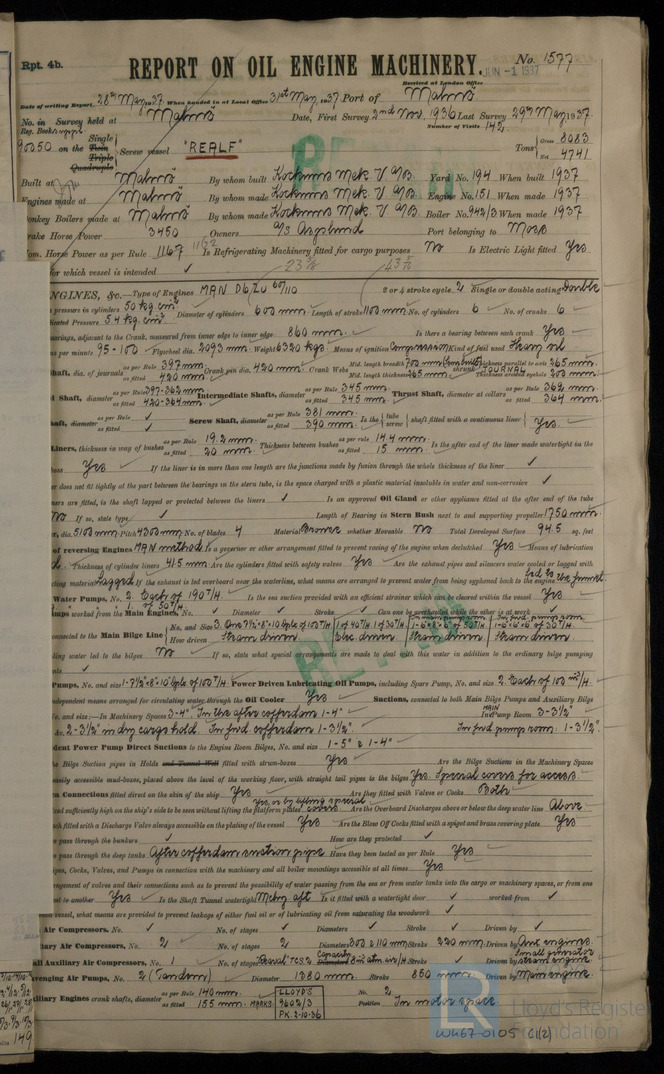 Rpt. 4b.
REPORT ON OIL ENGINE MACHINERY.
No. 1577
JUN -1 1937
Received at London Office
Date of writing Report 28th May 1937 When handed in at Local Office 31st May 1937 Port of Malmö
No. in Survey held at Malmö Date, First Survey 2nd Nov. 1936 Last Survey 29th May 1937
Reg. Book. Number of Visits 142
90050 on the Single Twin Triple Quadruple Screw vessel "REALF" Tons Gross 8083 Net 4741
Built at Malmö By whom built Kockums Mek. V. A/B Yard No. 194 When built 1937
Engines made at Malmö By whom made Kockums Mek. V. A/B Engine No. 151 When made 1937
Donkey Boilers made at Malmö By whom made Kockums Mek. V. A/B Boiler No. 942/3 When made 1937
Brake Horse Power 3450 Owners Port belonging to Moss
Nom. Horse Power as per Rule 1167 1162 Is Refrigerating Machinery fitted for cargo purposes No Is Electric Light fitted Yes
for which vessel is intended
ENGINES, &c.—Type of Engines MAN D6ZU 60/110 2 or 4 stroke cycle 2 Single or double acting Double
pressure in cylinders 50 kg cm² Diameter of cylinders 600 mm. Length of stroke 1100 mm. No. of cylinders 6 No. of cranks 6
Indicated Pressure 5.4 kg cm²
bearings, adjacent to the Crank, measured from inner edge to inner edge 860 mm. Is there a bearing between each crank Yes
per minute 95-100 Flywheel dia. 2093 mm. Weight 6320 kgs. Means of ignition Compression Kind of fuel used Heavy oil
Shaft, dia. of journals as per Rule 397 mm as fitted 420 mm Crank pin dia. 420 mm. Crank Webs Mid. length breadth 700 mm Mid. length thickness 265 mm. shrunk JOURNAL Thickness parallel to axis 265 mm. Thickness around eyehole 200 mm.
Shaft, diameter as per Rule 397-362 mm as fitted 420-364 mm. Intermediate Shafts, diameter as per Rule 345 mm. as fitted 345 mm. Thrust Shaft, diameter at collars as per Rule 362 mm. as fitted 364 mm.
Shaft, diameter as per Rule as fitted Screw Shaft, diameter as per Rule 381 mm. as fitted 390 mm. Is the tube screw shaft fitted with a continuous liner Yes.
Liners, thickness in way of bushes as per Rule 19.2 mm. as fitted 20 mm. Thickness between bushes as per rule 14.4 mm. as fitted 15 mm. Is the after end of the liner made watertight in the
boss Yes If the liner is in more than one length are the junctions made by fusion through the whole thickness of the liner
does not fit tightly at the part between the bearings in the stern tube, is the space charged with a plastic material insoluble in water and non-corrosive
liners are fitted, is the shaft lapped or protected between the liners Is an approved Oil Gland or other appliance fitted at the after end of the tube
No If so, state type Length of Bearing in Stern Bush next to and supporting propeller 1750 mm.
dia. 5100 mm. Pitch 4300 mm. No. of blades 4 Material Bronze whether Moveable No Total Developed Surface 94.5 sq. feet
of reversing Engines MAN method Is a governor or other arrangement fitted to prevent racing of the engine when declutched Yes Means of lubrication
Thickness of cylinder liners 41.5 mm. Are the cylinders fitted with safety valves Yes Are the exhaust pipes and silencers water cooled or lagged with
material Lagged If the exhaust is led overboard near the waterline, what means are arranged to prevent water from being syphoned back to the engine Led to the funnel
Water Pumps, No. 2. Each of 190 T/H. Is the sea suction provided with an efficient strainer which can be cleared within the vessel Yes
1. of 50 T/H.
worked from the Main Engines, No. Diameter Stroke Can one be overhauled while the other is at work
connected to the Main Bilge Line No. and Size How driven Steam driven Elec. driven Steam driven Steam driven
water led to the bilges No If so, state what special arrangements are made to deal with this water in addition to the ordinary bilge pumping
Pumps, No. and size 1-7½"×8"×10" Power Driven Lubricating Oil Pumps, including Spare Pump, No. and size 2. Each of 100 m³/H.
independent means arranged for circulating water through the Oil Cooler Yes Suctions, connected to both Main Bilge Pumps and Auxiliary Bilge
No. and size:—In Machinery Spaces 3-4". In the after cofferdam 1-4" In MAIN Pump Room 3-3½"
2-3½" in dry cargo hold. In fwd cofferdam 1-3½". In fwd pump room. 1-3½"
Independent Power Pump Direct Suctions to the Engine Room Bilges, No. and size 1-5" & 1-4"
the Bilge Suction pipes in Holds and Tunnel Well fitted with strum-boxes Yes Are the Bilge Suctions in the Machinery Spaces
easily accessible mud-boxes, placed above the level of the working floor, with straight tail pipes to the bilges Yes. Special covers for access.
Connections fitted direct on the skin of the ship Yes Are they fitted with Valves or Cocks Both
sufficiently high on the ship's side to be seen without lifting the platform plates Yes, or by lifting special covers Are the Overboard Discharges above or below the deep water line Above
each fitted with a Discharge Valve always accessible on the plating of the vessel Yes Are the Blow Off Cocks fitted with a spigot and brass covering plate Yes
pass through the bunkers How are they protected
pass through the deep tanks After cofferdam suction pipe Have they been tested as per Rule Yes
Pipes, Cocks, Valves, and Pumps in connection with the machinery and all boiler mountings accessible at all times Yes
arrangement of valves and their connections such as to prevent the possibility of water passing from the sea or from water tanks into the cargo or machinery spaces, or from one
to another Yes Is the Shaft Tunnel watertight Mchy. aft Is it fitted with a watertight door worked from
vessel, what means are provided to prevent leakage of either fuel oil or of lubricating oil from saturating the woodwork
Air Compressors, No. No. of stages Diameters Stroke Driven by
Auxiliary Air Compressors, No. 2 No. of stages 2 Diameters 300 & 110 mm Stroke 220 mm. Driven by Aux engines.
Small Auxiliary Air Compressors, No. 1 No. of stages Capacity Driven by Small generator steam engine.
Scavenging Air Pumps, No. 2 (Tandem) Diameter 1380 mm. Stroke 850 mm. Driven by Main engine.
Auxiliary Engines crank shafts, diameter as per Rule 140 mm. as fitted 155 mm. MARKS No. 2 Position In motor space
LLOYD'S
9602/3
PK. 2-10-36
149
Lloyd's Register
Foundation
W467-0105 (1/2)